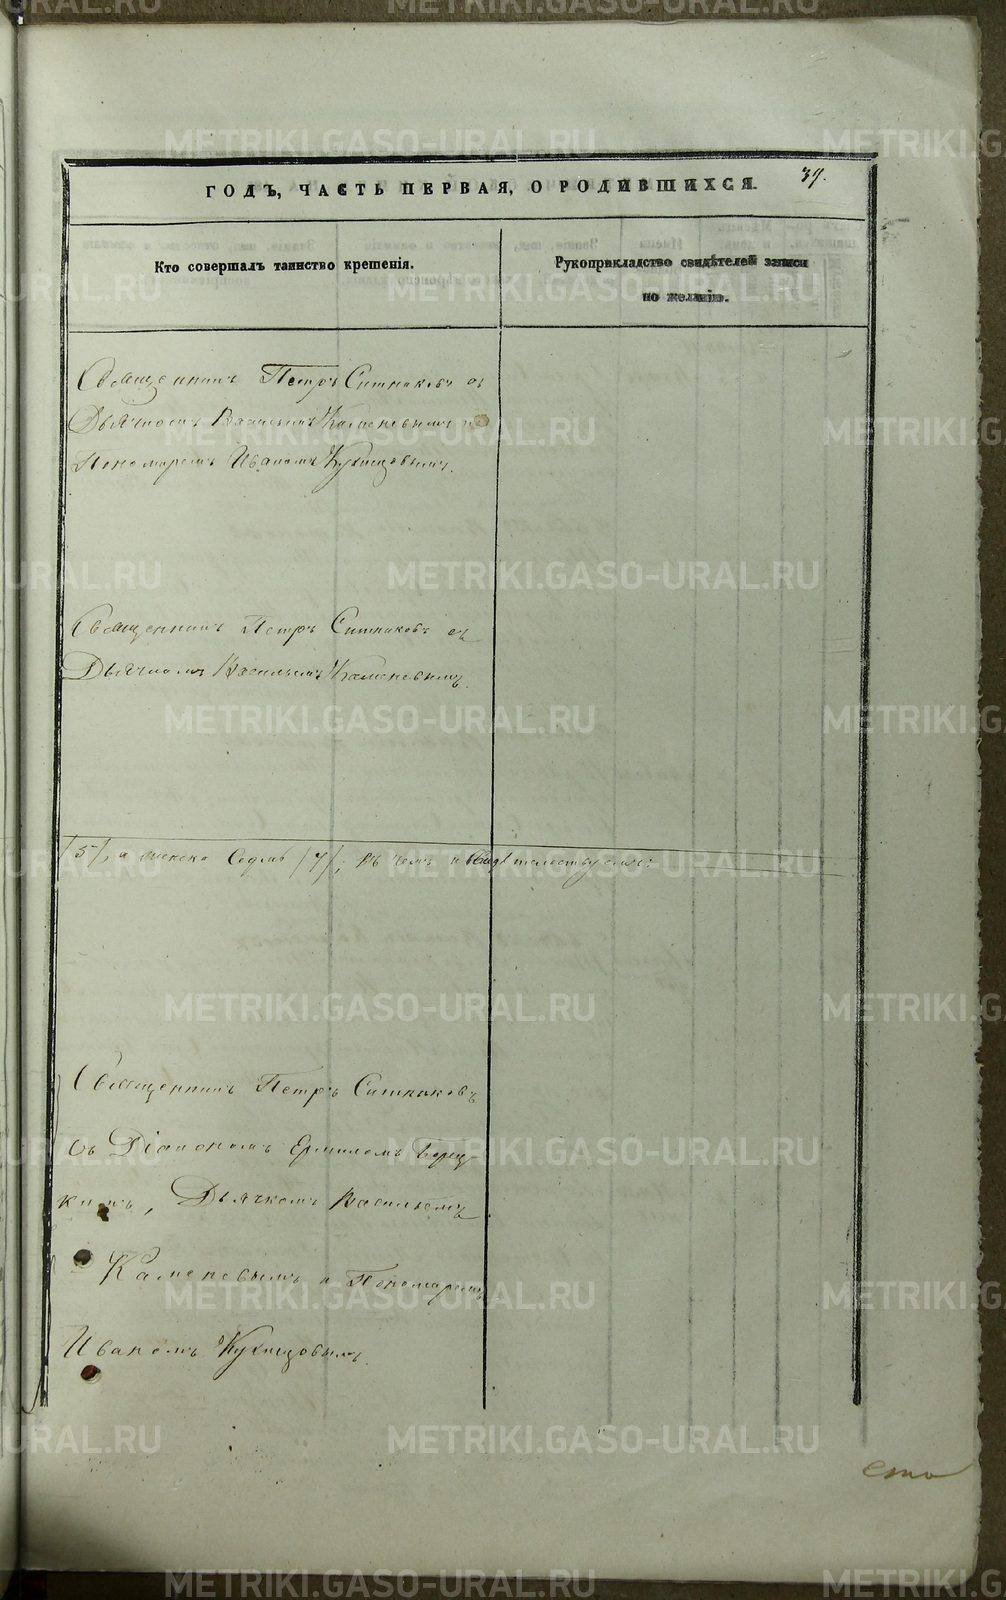 ГОДЪ, ЧАСТЬ ПЕРВАЯ, О РОДИВШИХСЯ.
39.
Кто совершалъ таинство крещенія.
Рукоприкладство свидѣтелей записи
по желанію.
Священникъ Петръ Ситниковъ съ
Дьячкомъ Васильемъ Каменевымъ и
Пономаремъ Иваномъ Кузнецовымъ.
Священникъ Петръ Ситниковъ съ
Дьячкомъ Васильемъ Каменевымъ.
/5/, а женска Седмь /7/; въ чемъ и свидѣтельствуемъ:
Священникъ Петръ Ситниковъ
съ Діакономъ Ермиломъ
Дьячкомъ Васильемъ
Каменевымъ и Пономаремъ
Иваномъ Кузнецовымъ.
METRIKI.GASO-URAL.RU